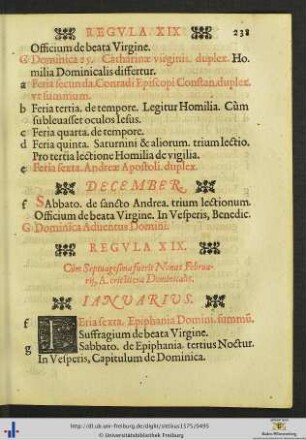 REGVLA XIX 238
Officium de beata Virgine.
G Dominica 25. Catharinæ virginis. duplex. Ho
milia Dominicalis differtur.
a Feria secunda. Conradi Episcopi Constan. duplex.
vt summum.
b Feria tertia. de tempore. Legitur Homilia. Cùm
subleuasset oculos Iesus.
c Feria quarta. de tempore.
d Feria quinta. Saturnini & aliorum. trium lectio.
Pro tertia lectione Homilia de vigilia.
e Feria sexta. Andreæ Apostoli. duplex.
DECEMBER.
f SAbbato. de sancto Andrea. trium lectionum.
Officium de beata Virgine. In Vesperis, Benedic.
G Dominica Aduentus Domini.
REGVLA XIX.
Cùm Septuagesima fuerit Nonas Februa-
rij, A. erit litera Dominicalis.
IANVARIVS.
f FEria sexta. Epiphania Domini. summũ.
Suffragium de beata Virgine.
g Sabbato. de Epiphania. tertius Noctur.
In Vesperis, Capitulum de Dominica.
http://dl.ub.uni-freiburg.de/diglit/sittikus1575/0495
© Universitätsbibliothek Freiburg